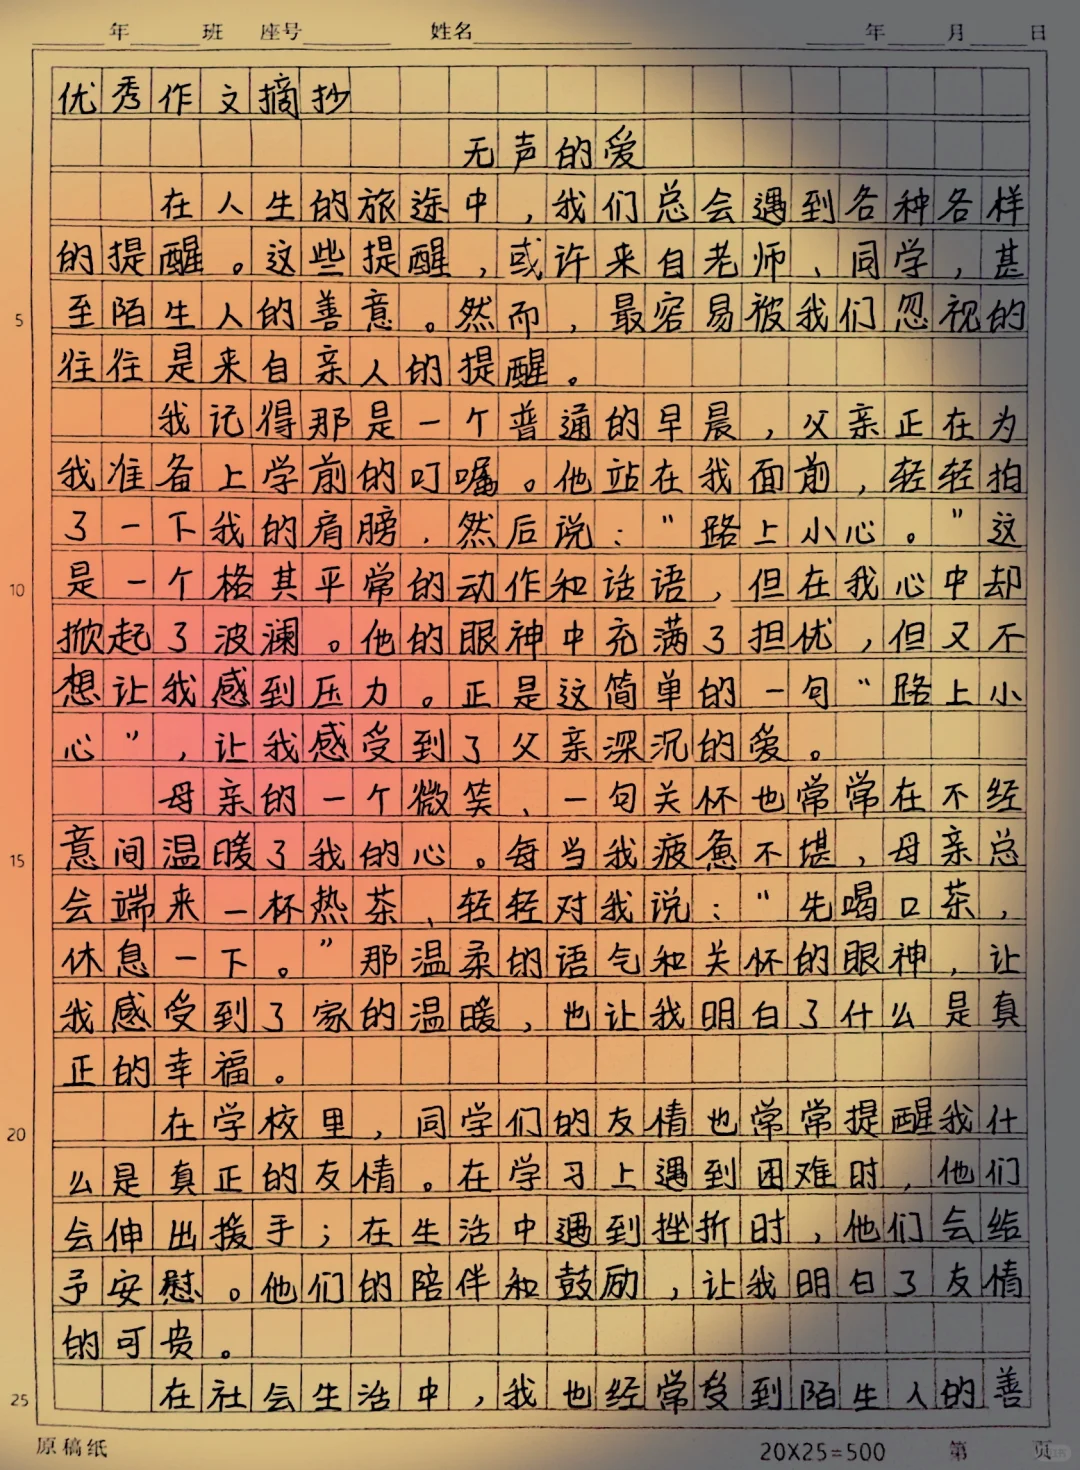 年 班 座号 姓名 年 月 日
优秀作文摘抄
无声的爱
在人生的旅途中,我们总会遇到各种各样
的提醒。这些提醒,或许来自老师、同学,甚
至陌生人的善意。然而,最容易被我们忽视的
往往是来自亲人的提醒。
5
我记得那是一个普通的早晨,父亲正在为
我准备上学前的叮嘱。他站在我面前,轻轻拍
了一下我的肩膀,然后说:“路上小心。”这
是一个格其平常的动作和话语,但在我心中却
10
掀起了波澜。他的眼神中充满了担忧,但又不
想让我感到压力。正是这简单的一句“路上小
心”,让我感受到了父亲深沉的爱。
母亲的一个微笑、一句关怀也常常在不经
意间温暖了我的心。每当我疲惫不堪,母亲总
15
会端来一杯热茶、轻轻对我说:“先喝口茶,
休息一下。”那温柔的语气和关怀的眼神,让
我感受到了家的温暖,也让我明白了什么是真
正的幸福。
在学校里,同学们的友情也常常提醒我什
20
么是真正的友情。在学习上遇到困难时,他们
会伸出援手;在生活中遇到挫折时,他们会给
予安慰。他们的陪伴和鼓励,让我明白了友情
的可贵。
在社会生活中,我也经常受到陌生人的善
25
原稿纸 20X25=500 第 页